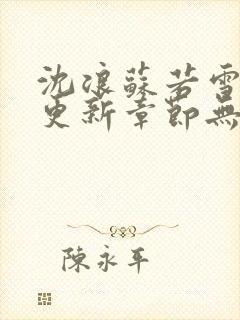 沈浪蘇若雪
更新章節無
陳永平